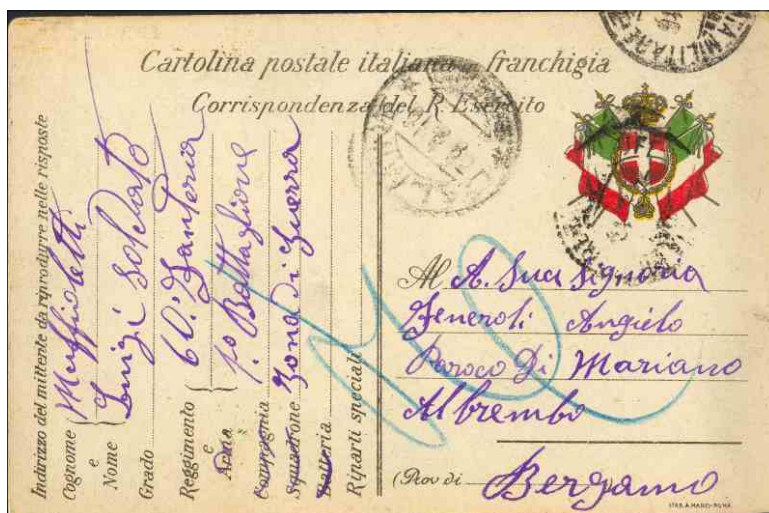 Cartolina postale italiana in franchigia
Corrispondenza del R. Esercito
Indirizzo del mittente da riprodurre nelle risposte
Cognome
e
Nome Luigi
Grado Soldato
Reggimento 60.° Fanteria
e
Arma
Compagnia 1.° Battaglione
Squadrone Zona di Guerra
Batteria
Riparti speciali
Al A. Sua Signoria
Angielo
Paroco Di Mariano
Al brembo
(Prov di Bergamo